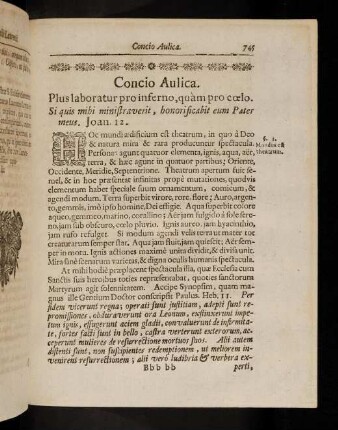 Concio Aulica. 745
Concio Aulica.
Plus laboratur pro inferno, quàm pro cœlo.
Si quis mihi ministraverit, honorificabit eum Pater
meus. Joan. 12.
HOc mundi ædificium est theatrum, in quo à Deo
& natura mira & rara producuntur spectacula.
Personæ agunt quatuor elementa, ignis, aqua, aër,
terra, & hæc agunt in quatuor partibus; Oriente,
Occidente, Meridie, Septentrione. Theatrum apertum fuit semel,
& in hoc præsente infinitas propè mutationes, quodvis
elementum habet speciale suum ornamentum, comicum, &
agendi modum. Terra superbit virore, rore, flore; Auro, argento,
gemmis, imò ipso homine, Dei effigie. Aqua superbit colore
aqueo, gemmeo, marino, corallino; Aër jam fulgido à sole sereno,
jam sub obscuro, cœlo pluvio. Ignis aureo, jam hyacinthio,
jam ruso refulget. Si modum agendi videris movetur mater tot
creaturarum semper stat. Aqua jam fluit, jam quiescit; Aër semper
in motu. Ignis actiones maximè unita dividit, & divisa unit.
Mira sanè scenarum varietas, & digna oculis humanis spectacula.
At mihi hodiè præplacent spectacula illa, quæ Ecclesia cum
Sanctis suis heroibus toties repræsentabat, quoties sanctorum
Martyrum agit solennitatem. Accipe Synopsim, quam magnus
ille Gentium Doctor conscripsit Paulus. Heb. 11. Per
fidem vicerunt regna; operati sunt justitiam, adepti sunt repromissiones,
obduraverunt ora Leonum, extinxerunt impetum
ignis, effugerunt aciem gladii, convaluerunt de infirmitate,
fortes facti sunt in bello, castra verterunt exterorum, acceperunt
mulieres de resurrectione mortuos suos. Alii autem
distenti sunt, non suscipientes redemptionem, ut meliorem invenirent
resurrectionem; alii verò ludibria & verbera ex-
Bbb bb perti,
§. 1.
Mundus est
theatrum.